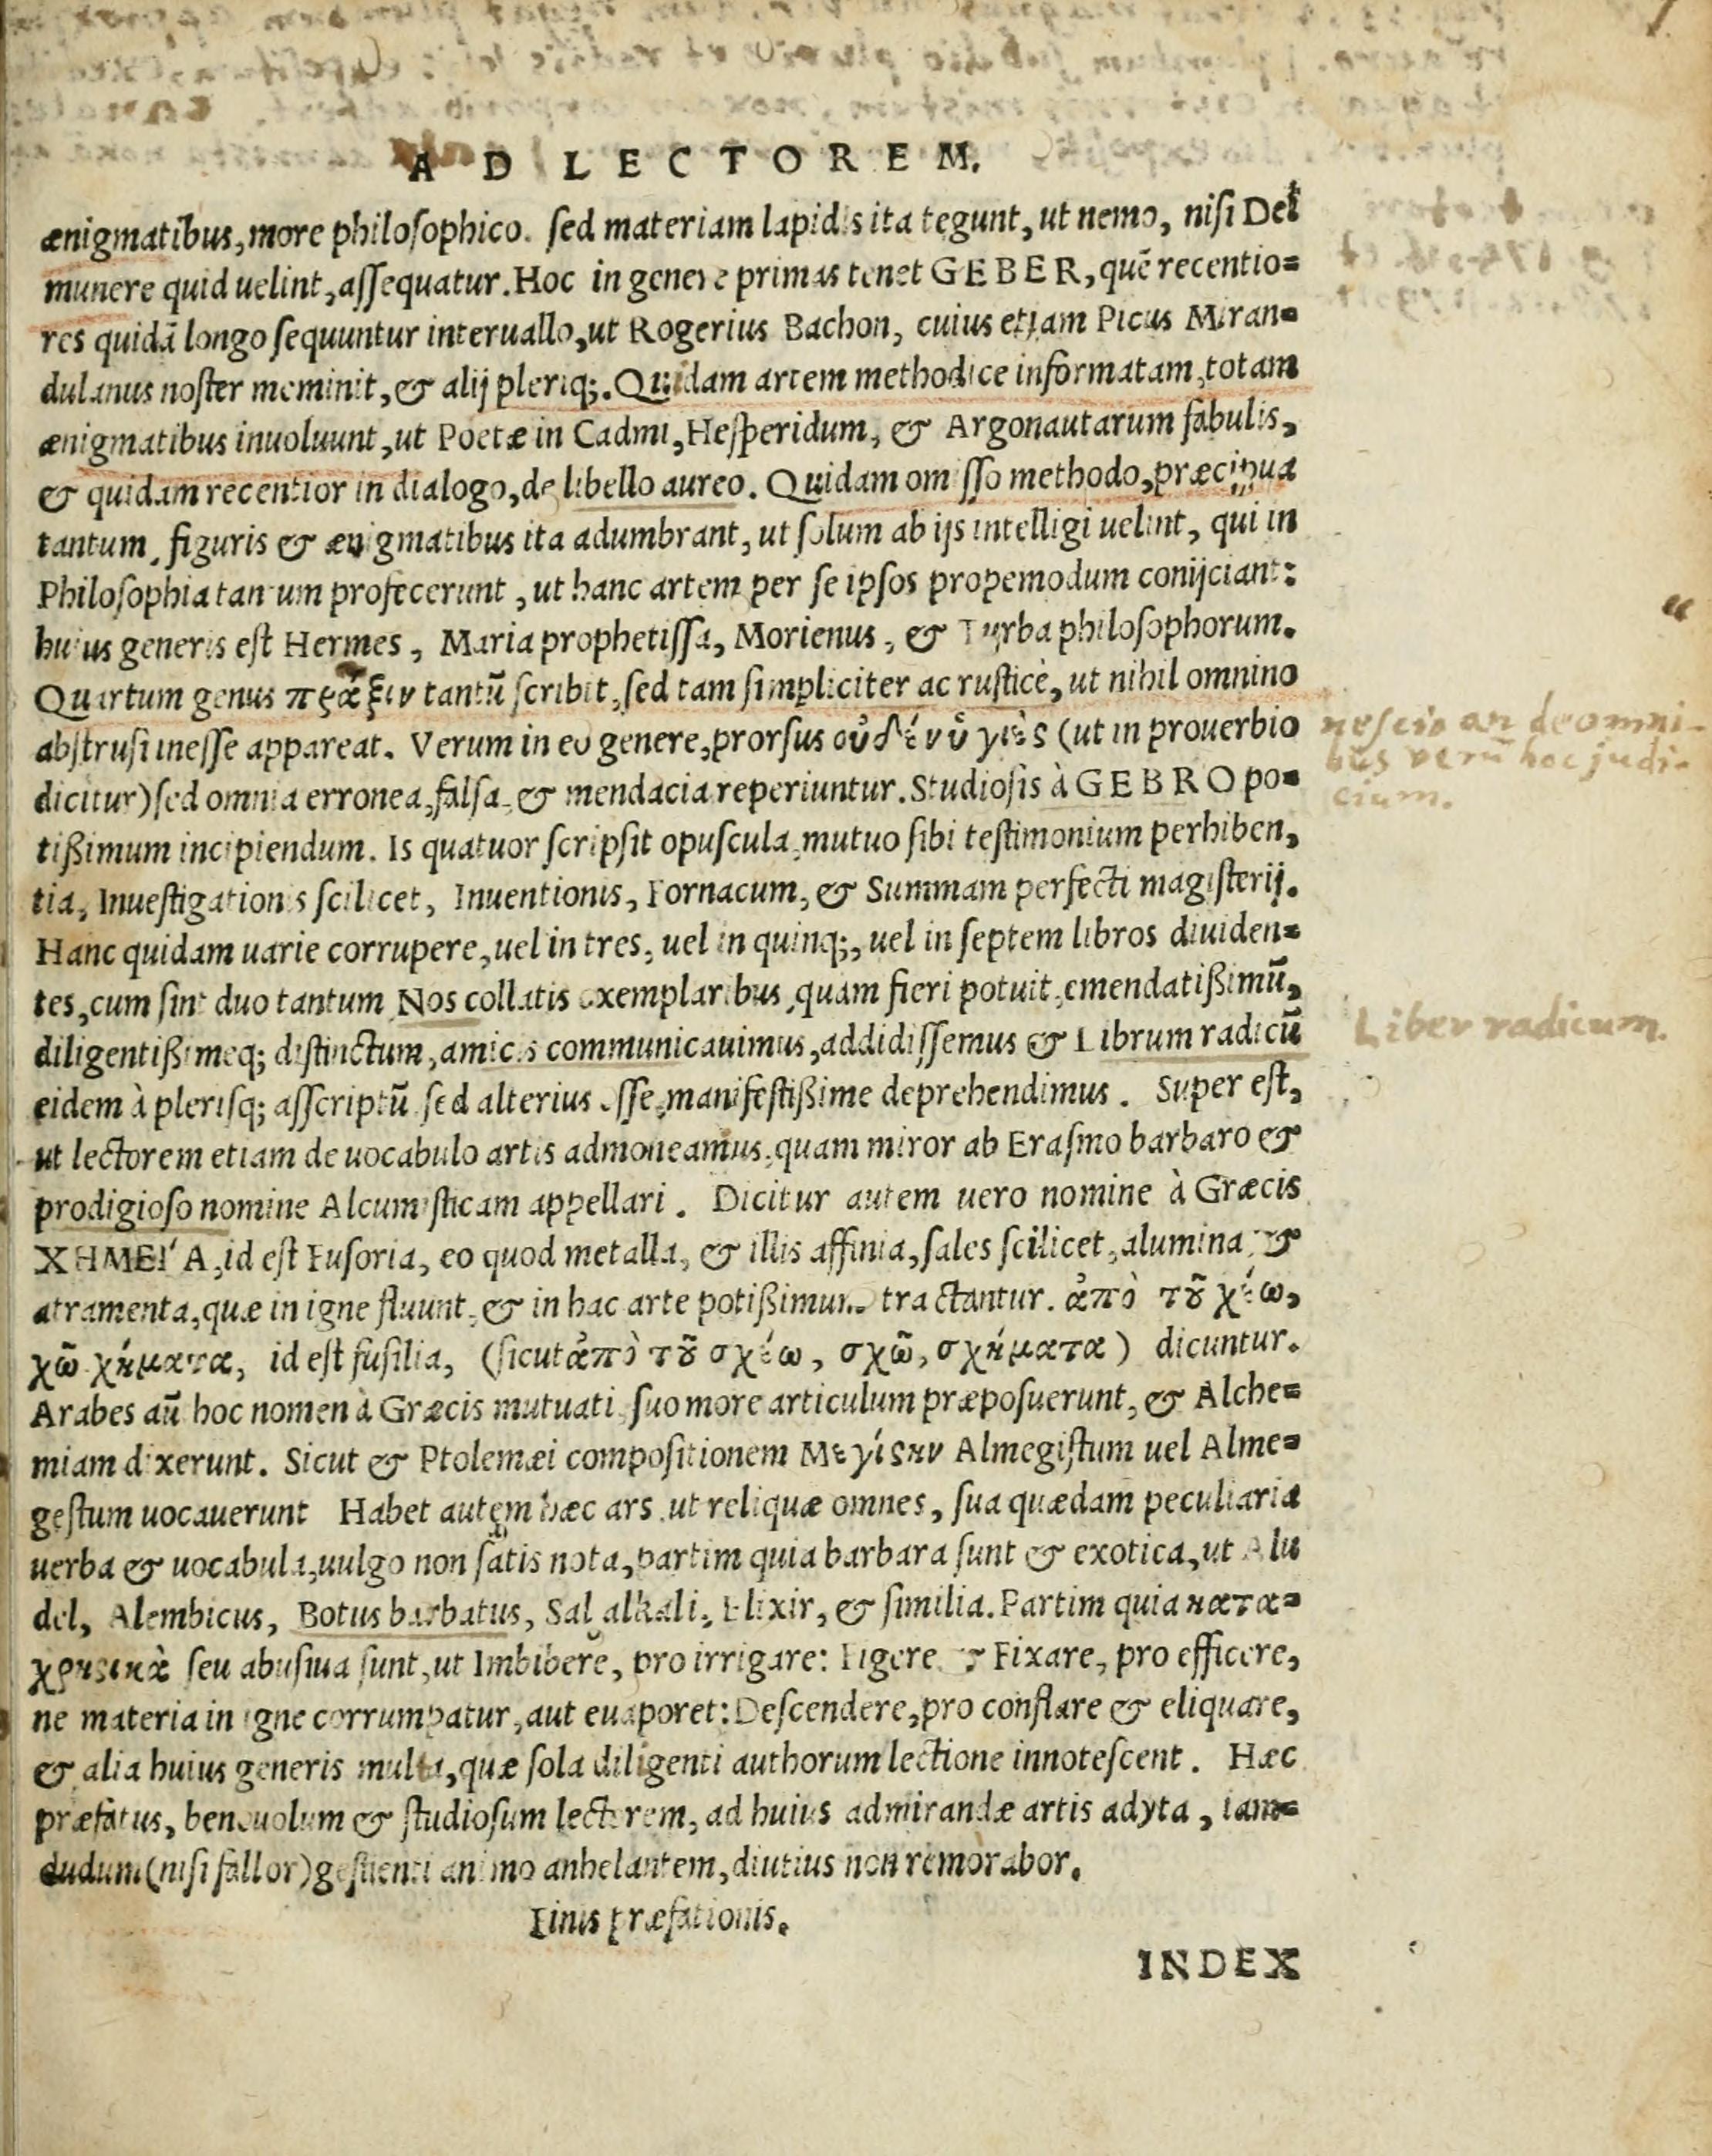 AD LECTOREM.
ænigmatibus, more philosophico. sed materiam lapidis ita tegunt, ut nemo, nisi Dei
munere quid uelint, assequatur. Hoc in genere primas tenet GEBER, quē recentio=
res quidā longo sequuntur interuallo, ut Rogerius Bachon, cuius etiam Picus Miran=
dulanus noster meminit, & alij pleriq;. Quidam artem methodice informatam, totam
ænigmatibus inuoluunt, ut Poetæ in Cadmi, Hesperidum, & Argonautarum fabulis,
& quidam recentior in dialogo, de libello aureo. Quidam omisso methodo, præcipua
tantum, figuris & ænigmatibus ita adumbrant, ut solum ab ijs intelligi uelint, qui in
Philosophia tantum profecerunt, ut hanc artem per se ipsos propemodum conijciant:
huius generis est Hermes, Maria prophetissa, Morienus, & Turba philosophorum.
Quartum genus πρᾶξιν tantū scribit, sed tam simpliciter ac rusticè, ut nihil omnino
abstrusi inesse appareat. Verum in eo genere, prorsus οὐδὲν ὑγιὲς (ut in prouerbio
dicitur) sed omnia erronea, falsa, & mendacia reperiuntur. Studiosis à GEBRO po=
tißimum incipiendum. Is quatuor scripsit opuscula, mutuo sibi testimonium perhiben,
tia, Inuestigationis scilicet, Inuentionis, Fornacum, & Summam perfecti magisterij.
Hanc quidam uarie corrupere, uel in tres, uel in quinq;, uel in septem libros diuiden=
tes, cum sint duo tantum Nos collatis exemplaribus, quam fieri potuit, emendatißimū,
diligentißimeq; distinctum, amicis communicauimus, addidissemus & Librum radicū
eidem à plerisq; asscriptū sed alterius esse, manifestißime deprehendimus. Super est,
ut lectorem etiam de uocabulo artis admoneamus, quam miror ab Erasmo barbaro &
prodigioso nomine Alcumisticam appellari. Dicitur autem uero nomine à Græcis
ΧΗΜΕΙ´Α, id est Fusoria, eo quod metalla, & illis affinia, sales scilicet, alumina, &
atramenta, quæ in igne fluunt, & in hac arte potißimum tractantur. ἀπὸ τοῦ χέω,
χῶ χήματα, id est fusilia, (sicut ἀπὸ τοῦ σχέω, σχῶ, σχήματα) dicuntur.
Arabes aū hoc nomen à Græcis mutuati, suo more articulum præposuerunt, & Alche=
miam dixerunt. Sicut & Ptolemæi compositionem Μεγίστην Almegistum uel Alme=
gestum uocauerunt Habet autem hæc ars, ut reliquæ omnes, sua quædam peculiaria
uerba & uocabula, uulgo non satis nota, partim quia barbara sunt & exotica, ut Alu
del, Alembicus, Botus barbatus, Sal alkali, Elixir, & similia. Partim quia κατα=
χρηστικὰ seu abusiua sunt, ut Imbibere, pro irrigare: Figere & Fixare, pro efficere,
ne materia in igne corrumpatur, aut euaporet: Descendere, pro conflare & eliquare,
& alia huius generis multa, quæ sola diligenti authorum lectione innotescent. Hæc
præfatus, beneuolum & studiosum lectorem, ad huius admirandæ artis adyta, iam=
dudum (nisi fallor) gestienti animo anhelantem, diutius non remorabor.
Finis præfationis.
INDEX
nescio an de omni-
bus verū hoc judi-
cium.
Liber radicum.